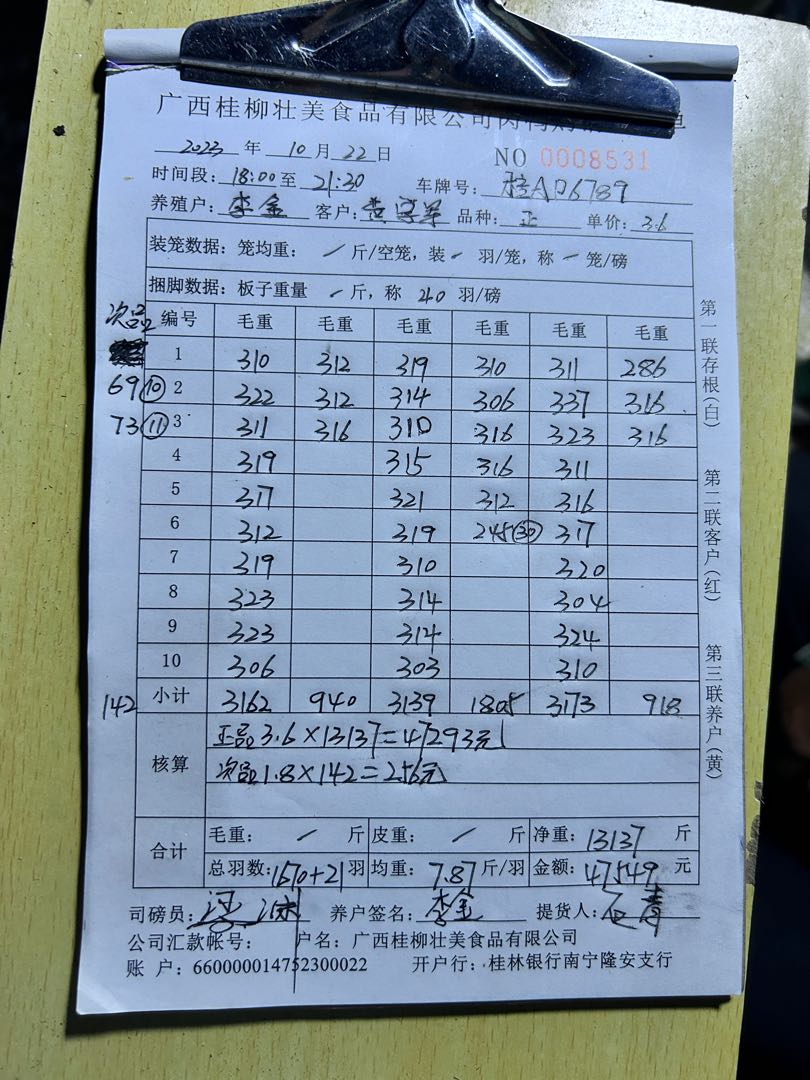 广西桂柳壮美食品有限公司
2023 年 10 月 22 日 NO 0008531
时间段: 18:00 至 21:30 车牌号: 桂AD6789
养殖户: 李金 客户: 品种: 正 单价: 3.6
装笼数据: 笼均重: / 斤/空笼, 装 - 羽/笼, 称 - 笼/磅
捆脚数据: 板子重量 / 斤, 称 40 羽/磅
次品 编号 毛重 毛重 毛重 毛重 毛重 毛重
1 310 312 319 310 311 286
69 ⑩ 2 322 312 314 306 337 316
73 ⑪ 3 311 316 310 316 323 316
4 319 315 316 311
5 317 321 312 316
6 312 319 245 ㉚ 317
7 319 310 320
8 323 314 304
9 323 314 324
10 306 303 310
142 小计 3162 940 3139 1805 3173 918
核算 正品 3.6×13137=47293元
次品 1.8×142=256元
合计 毛重: / 斤 皮重: / 斤 净重: 13137 斤
总羽数: 1670+21 羽 均重: 7.87 斤/羽 金额: 47549 元
司磅员: 养户签名: 李金 提货人:
公司汇款帐号: 户名: 广西桂柳壮美食品有限公司
账 户: 660000014752300022 开户行: 桂林银行南宁隆安支行
第一联存根(白)
第二联客户(红)
第三联养户(黄)